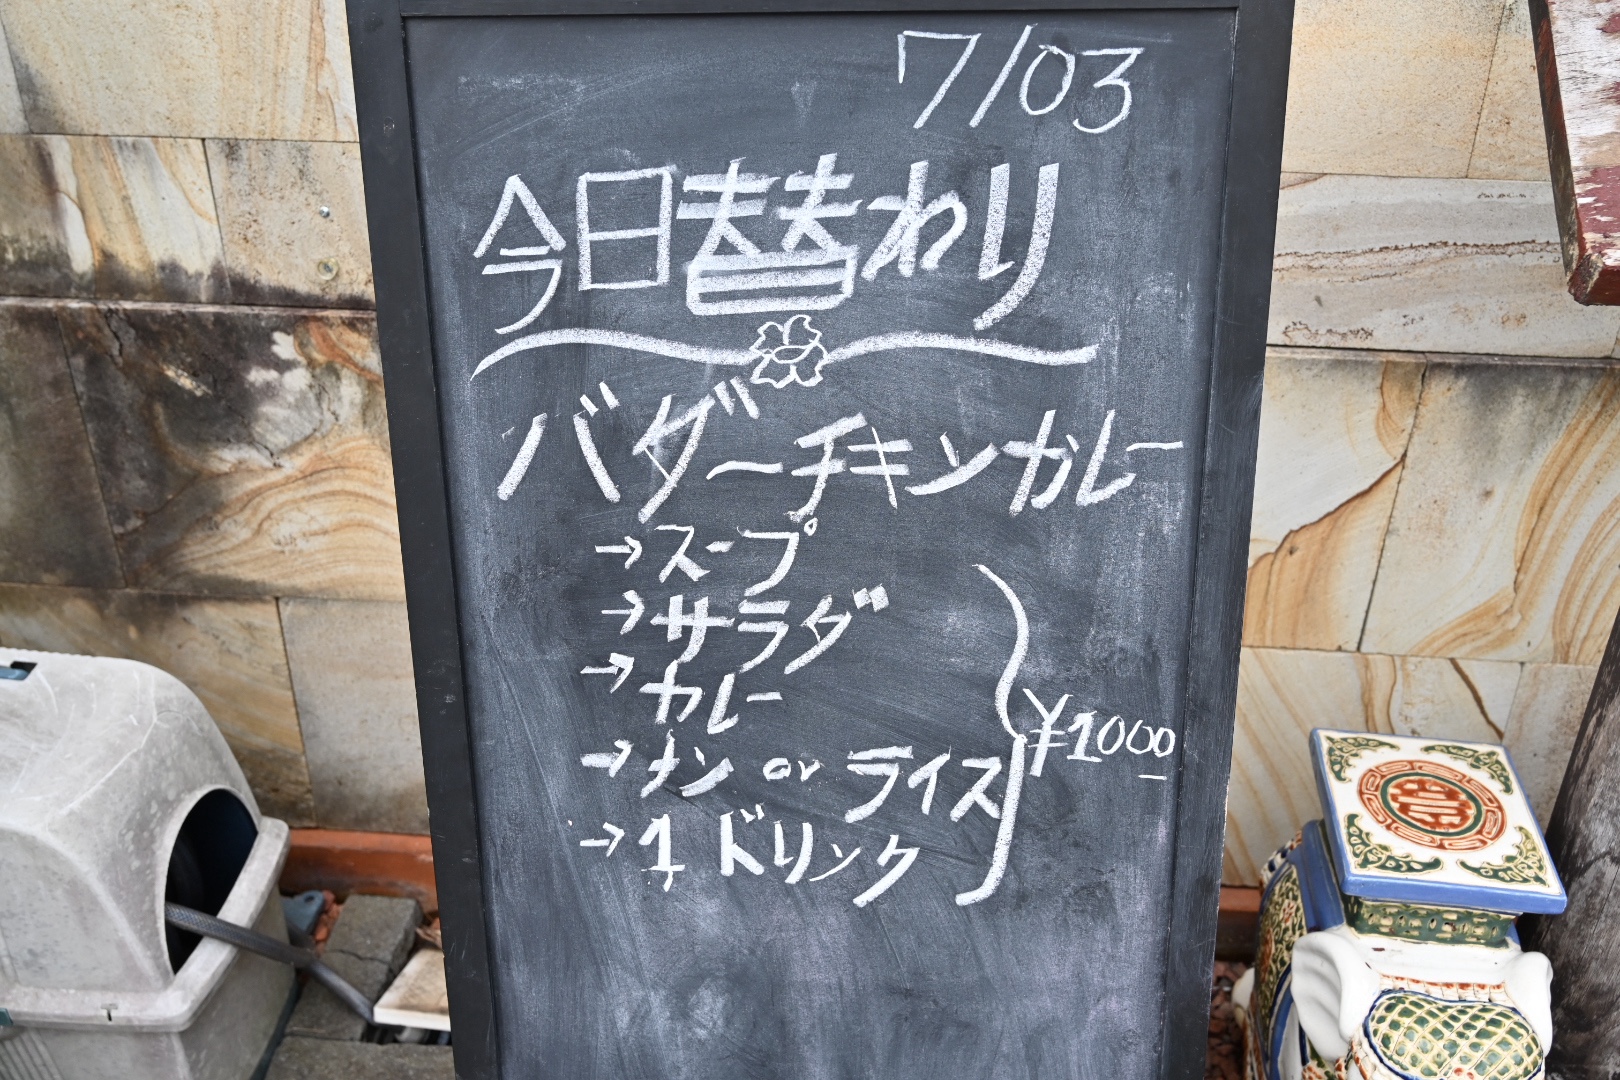 7/03
今日替わり
バダーチキンカレー
→スープ
→サラダ
→カレー
→ナン or ライス
→1ドリンク
¥1000